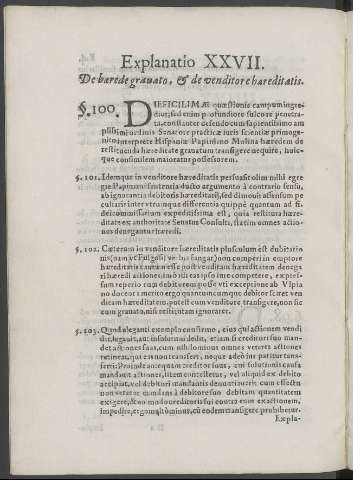 Explanatio XXVII.
De hærede grauato, & de venditore hæreditatis.
§. 100. DIFICILIMÆ quæstionis campum ingre-
dior, sed enim profundiore sulcore penetra-
ta, constanter defendo cum sapientissimo am
plissimi ordinis Senatore practicæ iuris scientiæ primoge-
nito interprete Hispaniæ Papiniano Molina hæredem de
restituenda hæreditate grauatum transigere nequire, huic-
que consimilem maioratus possessorem.
§. 101. Idemque in venditore hæreditatis persuasit olim mihi egre
gie Papiniani sententia ducto argumento à contrario sensu,
ab ignorantia debitoris hæreditarij, sed dimoui assensum pe
culiariter inter vtrumque differentia quippè quantum ad fi
deicommissarium expeditissima est, quia restituta hære-
ditate ex authoritate Senatus Consulti, statim omnes actio-
nes denegantur hæredi.
§. 102. Cæterum in venditore hæreditatis plusculum est dubitatio
nis (nam vt fusi 
 non comperi in emptore
hæreditatis cautum esse post venditam hæreditatem denega
ri hæredi actiones, imò sic eas ipsi ire competere, expres-
sum reperio cum debitorem posse vti exceptione ab Vlpia
no doceor: merito ergo quatenumcumque debitor sciret ven
ditam hæreditatem, potest cum venditore transigere, non sic
cum grauato, nisi restitutam ignorauerit.
§. 103. Quod eleganti exemplo confirmo, eius qui actionem vendi
dit, legauit, aut insolutum dedit, etiam si creditori suo man
det actiones suas, cum nihilominus omnes veteres actiones
retineat, qui eas non transfert, neque adeò ius patitur trans-
ferri: Proinde antequam creditor suus, cui solutionis causa
mandauit actiones, litem contestetur, vel aliquid ex debito
accipiat, vel debitori mandantis denuntiauerit cum effectu
non vetatur mandans à debitore suo debitam quantitatem
exigere, & eo modo creditoris sui contra eum exactionem,
impedire, ergo multò minus, cù eodem transigere prohibetur.
Expla-